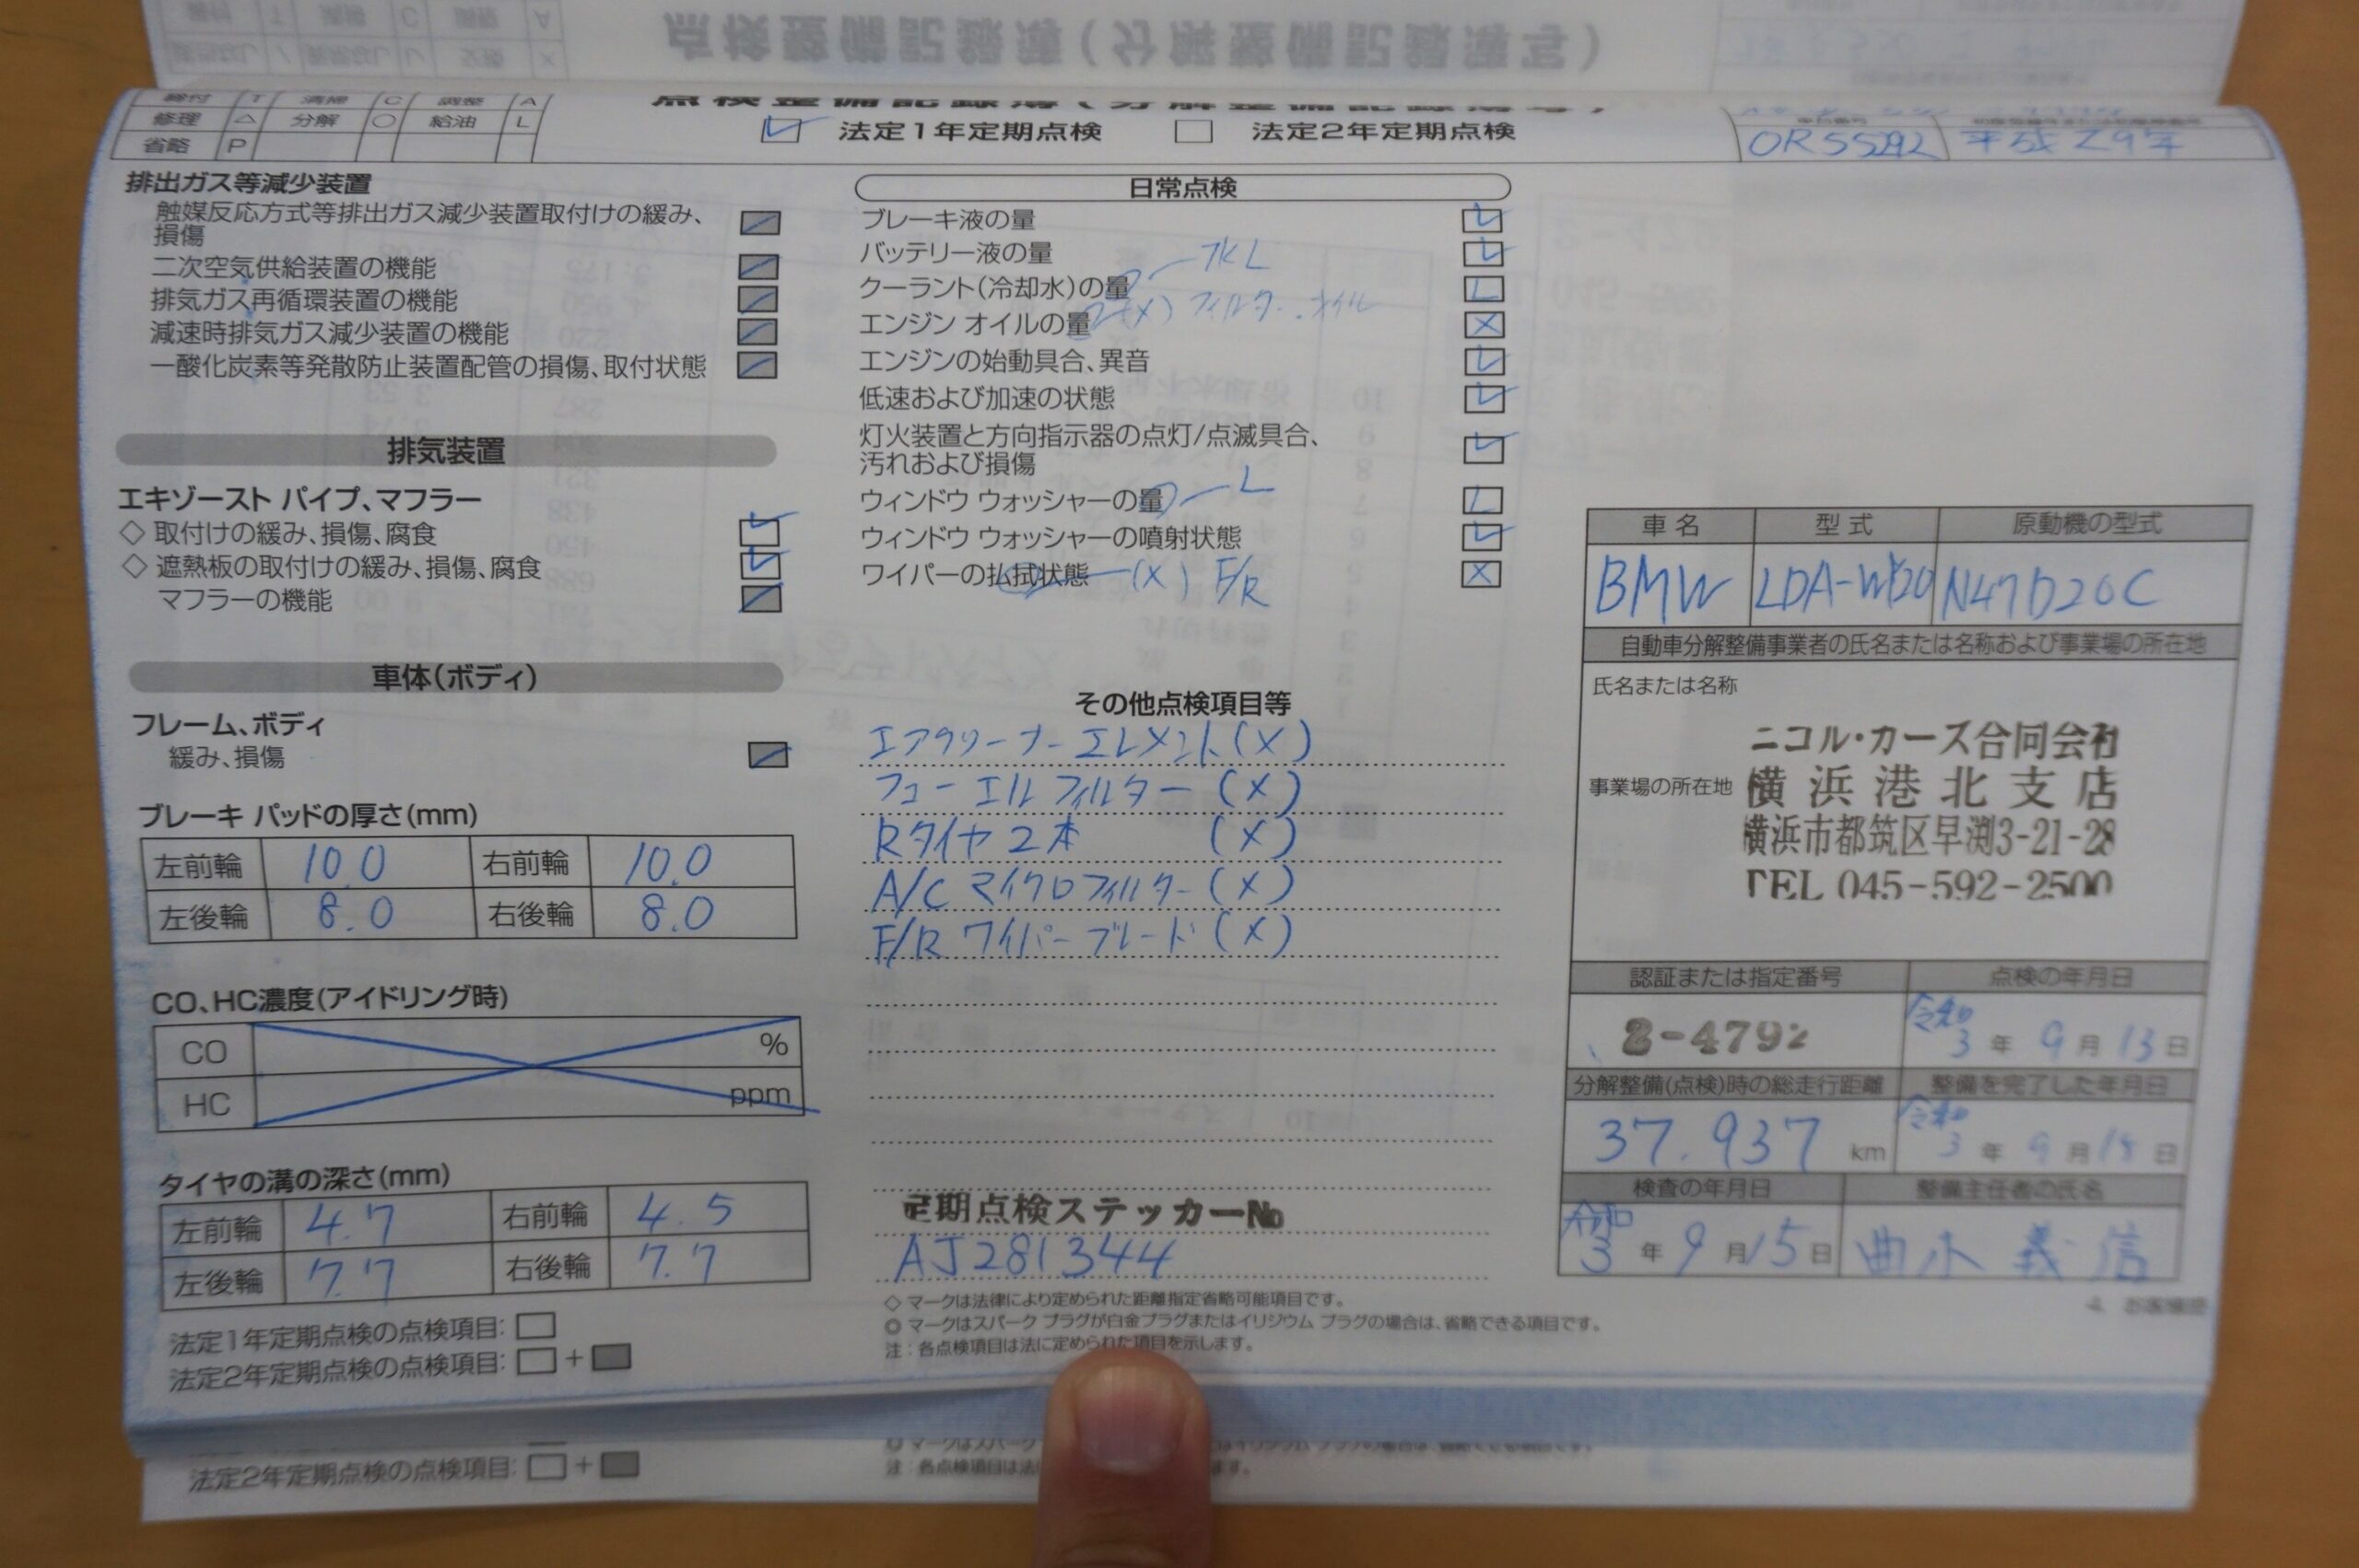 締付 T 清掃 C 調整 A
修理 △ 分解 ○ 給油 L
省略 P
点検整備記録簿(分解整備記録簿写)
✓ 法定1年定期点検 □ 法定2年定期点検
車台番号
0R55292 平成29年
排出ガス等減少装置
触媒反応方式等排出ガス減少装置取付けの緩み、
損傷
二次空気供給装置の機能
排気ガス再循環装置の機能
減速時排気ガス減少装置の機能
一酸化炭素等発散防止装置配管の損傷、取付状態
排気装置
エキゾースト パイプ、マフラー
◇ 取付けの緩み、損傷、腐食
◇ 遮熱板の取付けの緩み、損傷、腐食
マフラーの機能
車体(ボディ)
フレーム、ボディ
緩み、損傷
ブレーキ パッドの厚さ(mm)
左前輪 10.0 右前輪 10.0
左後輪 8.0 右後輪 8.0
CO、HC濃度(アイドリング時)
CO %
HC ppm
タイヤの溝の深さ(mm)
左前輪 4.7 右前輪 4.5
左後輪 7.7 右後輪 7.7
法定1年定期点検の点検項目: □
法定2年定期点検の点検項目: □ + ■
日常点検
ブレーキ液の量 ✓
バッテリー液の量 ✓
クーラント(冷却水)の量 水L L
エンジン オイルの量 (X) フィルター・オイル X
エンジンの始動具合、異音 ✓
低速および加速の状態 ✓
灯火装置と方向指示器の点灯/点滅具合、
汚れおよび損傷 ✓
ウィンドウ ウォッシャーの量 L L
ウィンドウ ウォッシャーの噴射状態 ✓
ワイパーの払拭状態 (X) F/R X
その他点検項目等
エアクリーナーエレメント(X)
フューエルフィルター (X)
Rタイヤ2本 (X)
A/C マイクロフィルター (X)
F/R ワイパーブレード (X)
定期点検ステッカーNo
AJ281344
◇ マークは法律により定められた距離指定省略可能項目です。
◎ マークはスパーク プラグが白金プラグまたはイリジウム プラグの場合は、省略できる項目です。
注:各点検項目は法に定められた項目を示します。
車名 型式 原動機の型式
BMW LDA-WY20 N47D20C
自動車分解整備事業者の氏名または名称および事業場の所在地
氏名または名称
ニコル・カーズ合同会社
事業場の所在地 横浜港北支店
横浜市都筑区早渕3-21-28
TEL 045-592-2500
認証または指定番号 点検の年月日
2-4792 令和3年9月13日
分解整備(点検)時の総走行距離 整備を完了した年月日
37.937 km 令和3年9月15日
検査の年月日 整備主任者の氏名
令和3年9月15日 義信
法定2年定期点検の点検項目: □ + ■
注:各点検項目は法 ます。